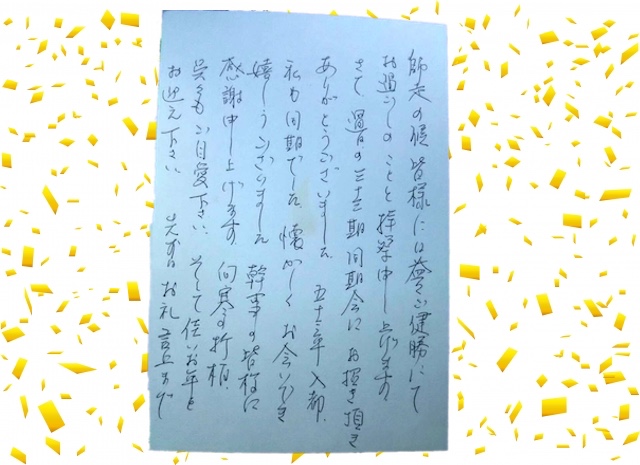 師走の候 皆様には益々ご健勝にて
お過ごしのことと拝察申し上げます
さて 過日の三十三期同期会に お招き頂き
ありがとうございました 五十三年入都、
私も同期でした 懐かしく お会いでき
嬉しうございました 幹事の皆様に
感謝申し上げます 向寒の折柄、
呉々もご自愛下さい そして佳いお年を
お迎え下さい 先ずはお礼 言上まで